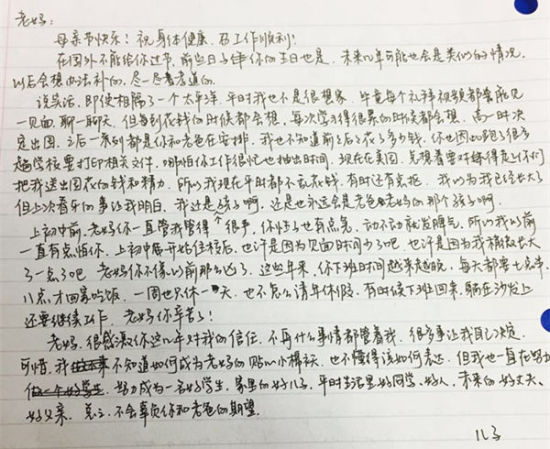 老妈：
母亲节快乐！祝身体健康，召工作顺利！
在国外不能给你过节，前些日子你的生日也是，未来几年可能也会是类似的情况，
以后会想办法补的，尽一尽着孝道的。
说实话，即使相隔了一个太平洋，平时我也不是很想家，毕竟每个礼拜视频都要能见
一见面，聊一聊天，但每到花钱的时候都会想，每次学习得很累的时候都会想，高一时决
定出国，之后一系列都是你和老爸在安排，我也不知道前前后后花了多少钱，你也因此跑了很多
趟学校要打印相关文件，哪怕你工作很忙也抽出时间，现在在美国，总想着要对得起你们
把我送出国花的钱和精力，所以我现在平时都不乱花钱，有时还有点抠，我以为我已经长大了
但上次看牙的事让我明白，我还是孩子啊，还是也永远会是老爸老妈的那个孩子啊。
上初中前，老妈你一直管我管得很严，你性子也有点急，动不动就发脾气，所以我以前
一直有点怕你，上初中后开始住校后，也许是因为见面时间少了吧，也许是因为我稍微长大
了一点了吧，老妈你不像以前那么凶了，这些年来，你下班时间越来越晚，每天都要七点半、
八点才回家吃饭，一周也只休一天，也不怎么请年休假，有时候下班回来，躺在沙发上
还要继续工作，老妈你辛苦了！
老妈，很感激你这几年对我的信任，不再什么事情都管着我，很多事让我自己决定，
可惜，我不知道如何成为老妈的贴心小棉袄，也不懂得该如何表达，但我也一直在努力
做一个好学生，努力成为一名好学生，家里的好儿子，平时生活里好同学、好人，未来的好丈夫、
好父亲。总之，不会辜负你和老爸的期望。
儿子